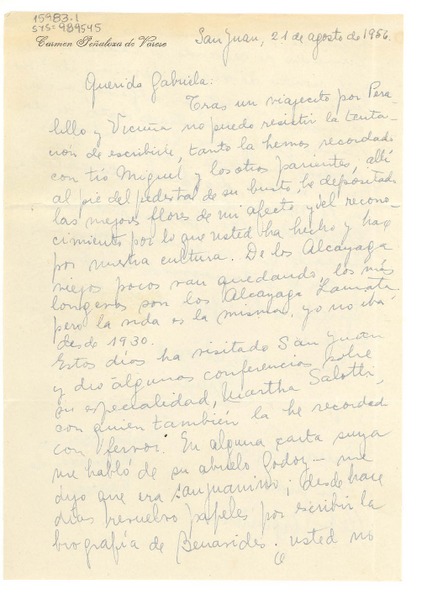 15983.1
SYS: 989545
Carmen Peñaloza de Varese
San Juan, 21 de agosto de 1956.
Querida Gabriela:
Tras un viajecito por Pera-
lillo y Vicuña no puedo resistir la tenta-
ción de escribirle, tanto la hemos recordado
con tío Miguel y los otros parientes, allí
al pie del pedestal de su busto, he depositado
las mejores flores de mi afecto y del recono-
cimiento por lo que usted ha hecho y hace
por nuestra cultura. De los Alcayaga
viejos pocos van quedando, los más
longevos son los Alcayaga
pero la vida es la misma. yo no iba
desde 1930.
Estos días ha visitado San Juan
y dio algunas conferencias sobre
su especialidad, Martha Salotti,
con quien también la he recordado
con fervor. En alguna carta suya
me habló de su abuelo Godoy - me
dijo que era sanjuanino; desde hace
días revuelvo papeles por escribir la
biografía de Benavides. usted no